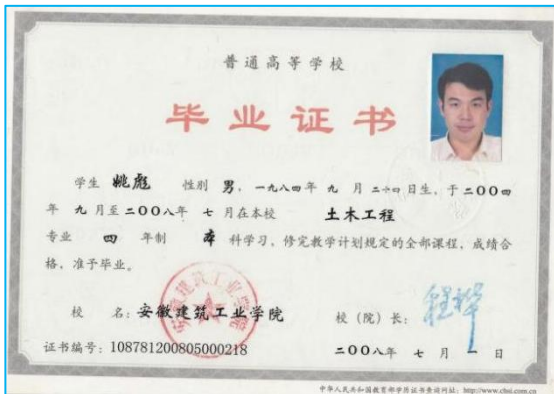 普通高等学校
毕业证书
学生 姚彪 性别 男，一九八四年 九 月 二十四日生，于二〇〇四
年 九 月至二〇〇八年 七 月在本校 土木工程
专业 四 年制 本 科学习，修完教学计划规定的全部课程，成绩合
格，准予毕业。
校 名：安徽建筑工业学院 校（院）长：
安徽建筑工业学院
证书编号：108781200805000218 二〇〇八年 七 月 一 日
中华人民共和国教育部学历证书查询网址：http://www.chsi.com.cn